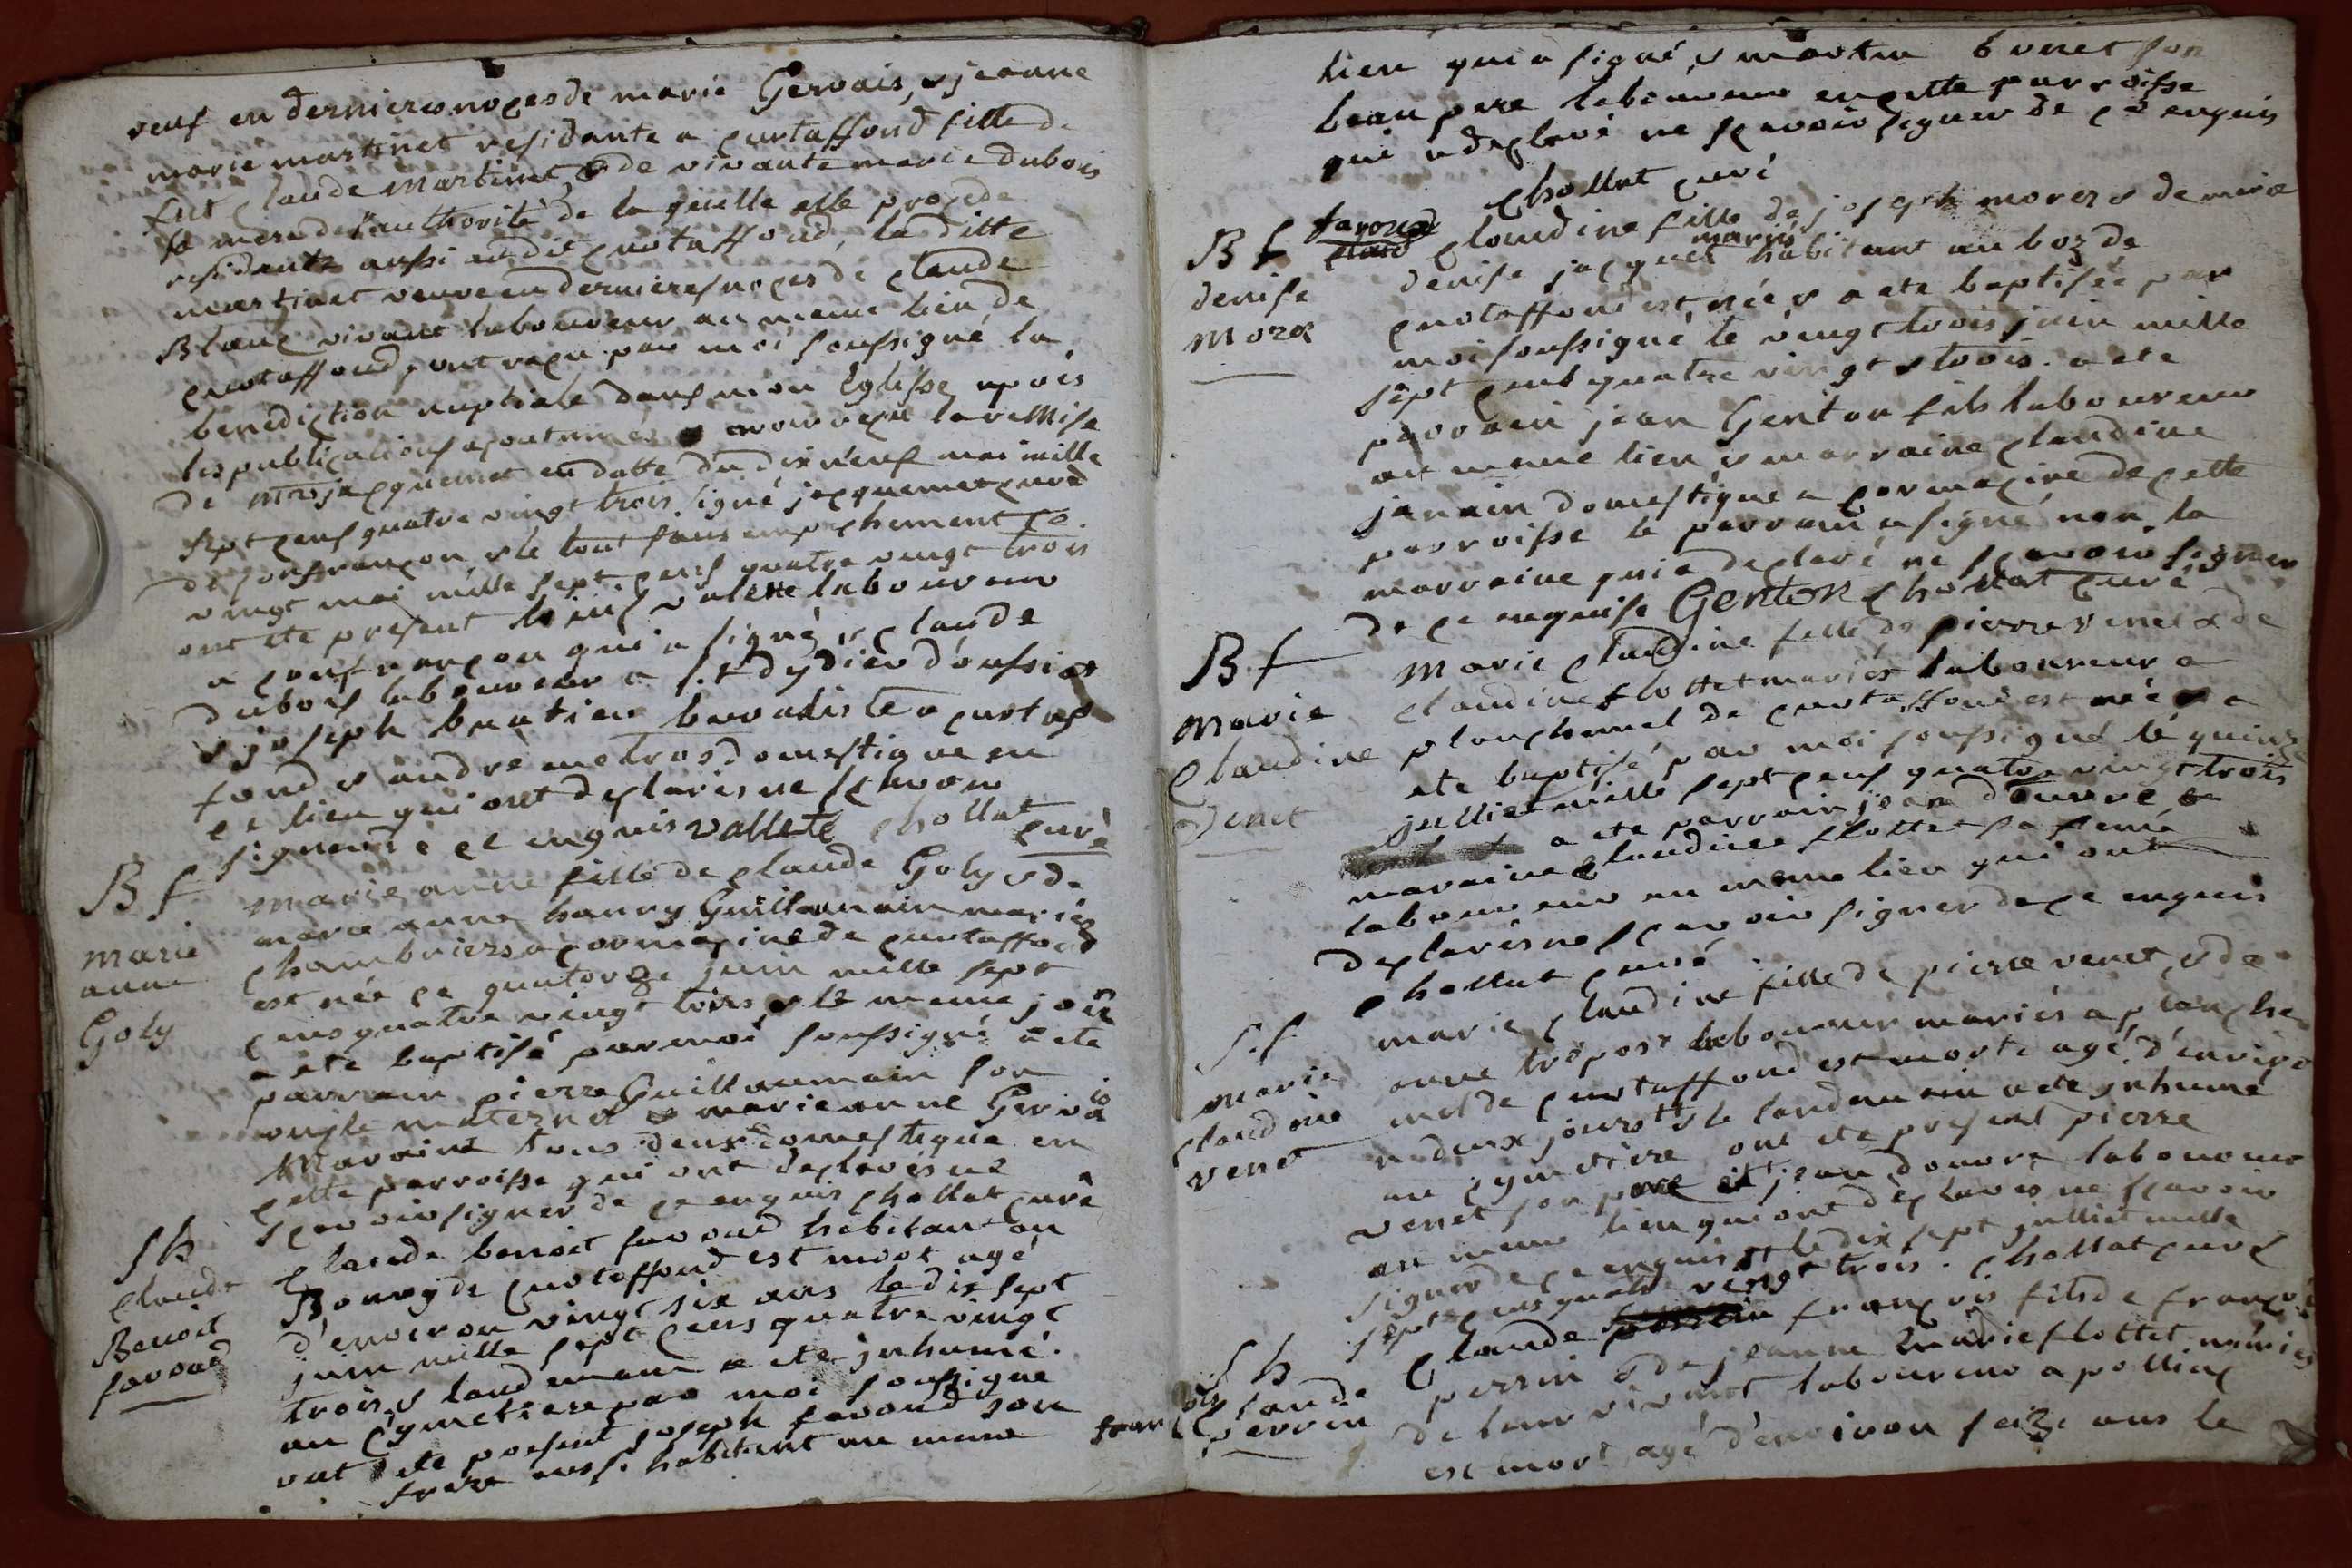 veuf en dernieres noces de marie Gervais, & jeanne
marie martinet residante a curtaffond fille de
fut claude Martinet & de vivante marie dubois
sa mere de l'authorité de la quelle elle procede
residante aussi au dit curtaffond, la ditte
martinet veuve en dernieres noces de claude
Blanc vivant laboureur au meme lieu de
curtaffond, ont reçu par moi soussigné la
benediction nuptiale dans mon Eglisse apois
les publications acoutumées & avoir reçu la remise
de mre jacquemet en datte du dix neuf mai mille
sept cens quatre vingt trois signé jacquemet curé
de confrançon, & le tout sans empechement ce
vingt mai mille sept cens quatre vingt trois
ont ete present valette laboureur
a confrançon qui a signé, & claude
dubois laboureur a st dydier d'oussiat
& joseph buatier a curtaf
fond & andrè metros domestique en
ce lieu qui ont declarés ne scavoir
signer de ce enquis vallette chollat
curè
B f marie anne fille de claude Goly & de
marie anne hanry Guillaumain mariés
marie chambriers a cormasine de curtaffond
anne est née ce quatorze juin mille sept
Goly cens quatre vingt trois, & le meme jour
a ete baptisé par moi soussigné a ete
parrain pierre Guillaumain son
oncle maternel & marie anne Gervais
Maraine tous deux domestique en
cette parroisse qui ont declarés ne
scavoir signer de ce enquis chollat curè
S h claude benoit favoud habitant au
claude Bourg de curtaffond est mort agé
Benoit d'environ vingt six ans le dix sept
favoud juin mille sept cens quatre vingt
trois, & landemain a ete inhumé
au cymetiere par moi soussigné
ont ete present joseph favoud son
frere aussi habitant au meme
lieu qui a signé, & martin venet son
beau pere laboureur en cette parroisse
qui a declaré ne scavoir signer de ce enquis
favoud chollat curé
B f claudine fille de joseph morez & de marie
denise denise jacquet mariés habitant au boz de
Morez curtaffond est née & a ete baptisée par
moi soussigné le vingt trois juin mille
sept cent quatre vingt & trois. a ete
parrain jean Genton fils laboureur
au meme lieu & marraine claudine
janain domestique a cormasine de cette
parroisse le parrain a signé non la
marraine qui a declaré ne scavoir signer
de ce enquise Genton chollat curé
B. f Marie claudine fille de pierre venet & de
Marie claudine flottet mariés laboureur a
claudine planchemel de curtaffond est née & a
venet ete baptisé par moi soussigné le quinze
julliet mille sept cens quatre vingt trois
a ete parrain jean douvre &
maraine claudine flottet sa feme
laboureur au meme lieu qui ont
declarés ne scavoir signer de ce enquis
chollat curé
S. f marie claudine fille de pierre venet, & de
marie anne laboureur mariés a planche
claudine mel de curtaffond est morte agé d'enviro
venet n deux jours & le landemain a ete inhumé
au cymetiere ont ete present pierre
venet son pere et jean douvre laboureur
au meme lieu qui ont declarés ne scavoir
signer de ce enquis le dix sept julliet mille
sept cens quatre vingt trois. chollat curé
S h Claude françois fils de françois
claude perrin & de jeanne marie flottet mariés
fran çois perrin de leur vivant laboureur a polliac
est mort agé d'environ seize ans le